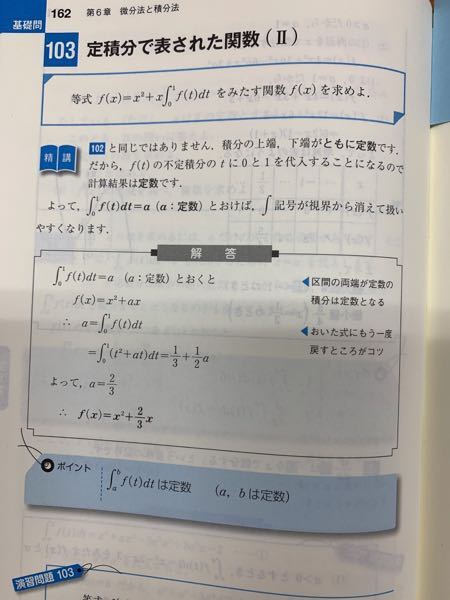 基礎問
162 第6章 微分法と積分法
103 定積分で表された関数(Ⅱ)
等式 f(x)=x²+x∫₀¹f(t)dt をみたす関数 f(x) を求めよ.
精講
102 と同じではありません. 積分の上端, 下端がともに定数です.
だから, f(t) の不定積分の t に 0 と 1 を代入することになるので
計算結果は定数です.
よって, ∫₀¹f(t)dt=a (a:定数) とおけば, ∫ 記号が視界から消えて扱い
やすくなります.
解答
∫₀¹f(t)dt=a (a:定数) とおくと
◀区間の両端が定数の
積分は定数となる
f(x)=x²+ax
∴ a=∫₀¹f(t)dt
◀おいた式にもう一度
戻すところがコツ
=∫₀¹(t²+at)dt=1/3+1/2a
よって, a=2/3
∴ f(x)=x²+2/3x
ポイント
∫ₐᵇf(t)dt は定数 (a, b は定数)
演習問題 103